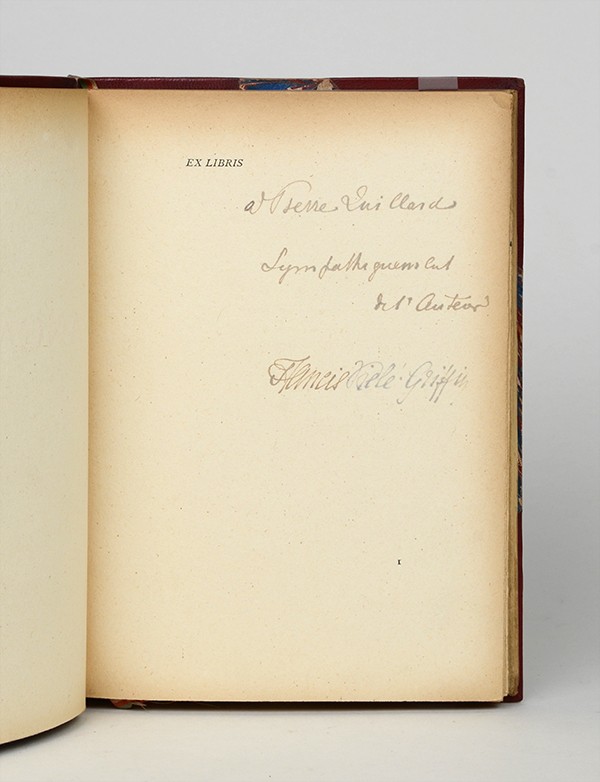 EX LIBRIS
à Pierre Quillard
Sympathiquement
de l'Auteur
Francis Vielé-Griffin
1